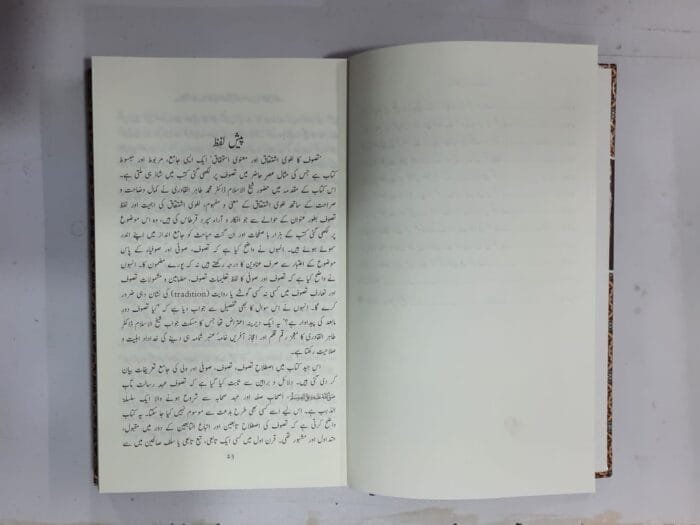 پیش لفظ
’تصوف کا لغوی اشتقاق اور معنوی استحقاق‘ ایک ایسی جامع، مربوط اور مبسوط
کتاب ہے جس کی مثال عصر حاضر میں تصوف پر لکھی گئی کتب میں شاذ ہی ملتی ہے۔
اس کتاب کے مقدمہ میں حضور شیخ الاسلام ڈاکٹر محمد طاہر القادری نے کمال وضاحت و
صراحت کے ساتھ لغوی اشتقاق کے معنی و مفہوم، لغوی اشتقاق کی اہمیت اور لفظ
تصوف بطور عنوان کے حوالے سے جو افکار و آراء سپرد قرطاس کی ہیں، وہ اس موضوع
پر لکھی گئی کتب کے ہزار ہا صفحات اور ان گنت مباحث کو جامع انداز میں اپنے اندر
سموئے ہوئے ہیں۔ انہوں نے واضح کیا ہے کہ تصوف، صوفی اور صوفیاء کے پاس
موضوع کے اعتبار سے صرف عناوین کا درجہ رکھتے ہیں نہ کہ پورے مضمون کا۔ انہوں
نے واضح کیا ہے کہ تصوف اور صوفی کا لفظ تعلیمات تصوف، مضامین و مشمولات تصوف
اور تعارف تصوف میں کسی نہ کسی گوشے یا روایت (tradition) کی نشان دہی ضرور
کرے گا۔ انہوں نے اس سوال کا بھی تفصیل سے جواب دیا ہے کہ ”کیا تصوف دور
مابعد کی پیداوار ہے؟“ یہ ایک دیرینہ اعتراض تھا جس کا مسکت جواب شیخ الاسلام ڈاکٹر
طاہر القادری کا معجز رقم قلم اور اعجاز آفریں خامۂ عنبر شمامہ ہی دینے کی خداداد اہلیت و
صلاحیت رکھتا ہے۔
اس جید کتاب میں اصطلاح تصوف، تصوف، صوفی اور ولی کی جامع تعریفات بیان
کر دی گئی ہیں۔ دلائل و براہین سے ثابت کیا گیا ہے کہ تصوف عہد رسالت مآب
ﷺ، اصحاب صفہ اور عہد صحابہ سے شروع ہونے والا ایک سلسلۃ
الذہب ہے۔ اس لیے اسے کسی بھی طرح بدعت سے موسوم نہیں کیا جا سکتا۔ یہ کتاب
واضح کرتی ہے کہ تصوف کی اصطلاح تابعین اور اتباع التابعین کے دور میں مقبول،
متداول اور مشہور تھی۔ قرن اول میں کسی ایک تابعی، تبع تابعی یا سلف صالحین میں سے